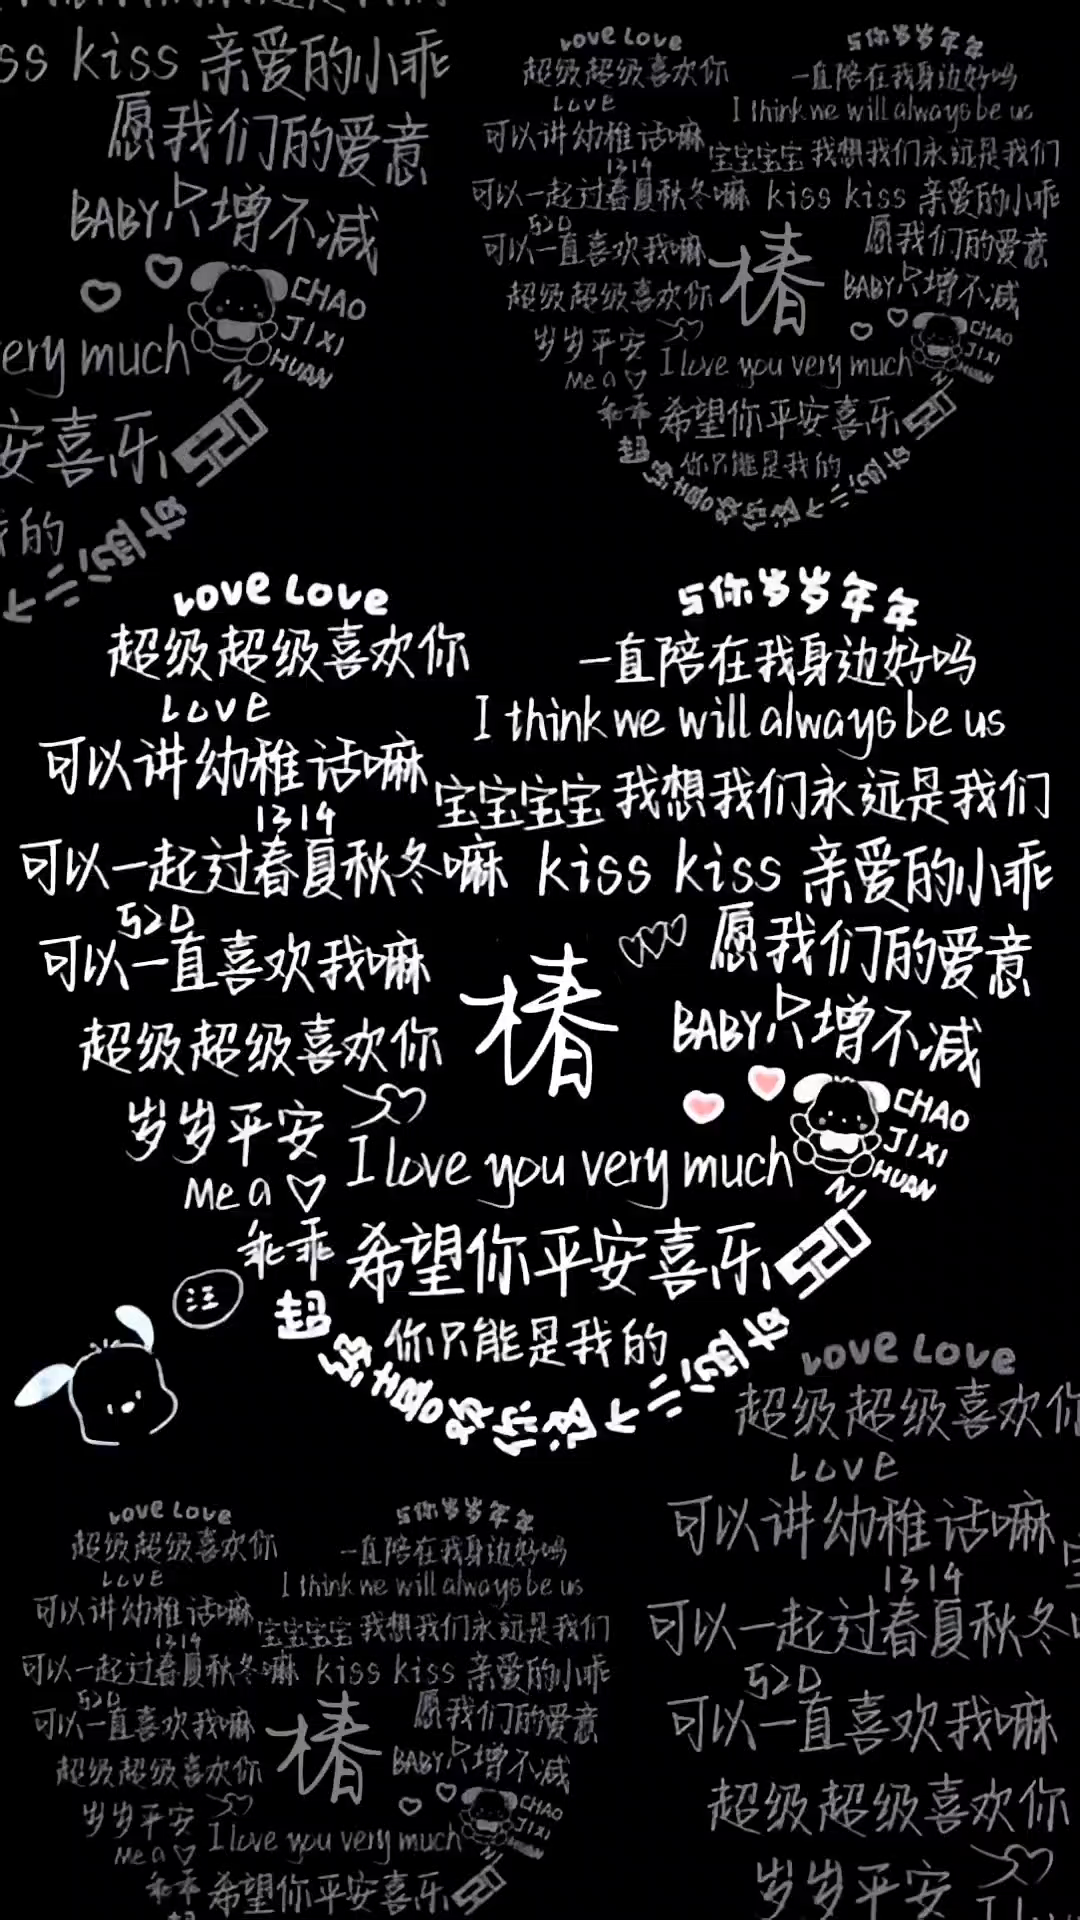 ss kiss 亲爱的小乖
愿我们的爱意
BABY只增不减
CHAO
JIXI
HUAN
NI
ery much
安喜乐
520
的
Love Love
与你岁岁年年
超级超级喜欢你
一直陪在我身边好吗
Love
I think we will always be us
可以讲幼稚话嘛
宝宝宝宝 我想我们永远是我们
1314
可以一起过春夏秋冬嘛 kiss kiss 亲爱的小乖
520
愿我们的爱意
可以一直喜欢我嘛
椿
BABY只增不减
超级超级喜欢你
CHAO
JIXI
HUAN
NI
岁岁平安
I love you very much
Me a
乖乖 希望你平安喜乐
520
你只能是我的
Love Love
与你岁岁年年
超级超级喜欢你
一直陪在我身边好吗
Love
I think we will always be us
可以讲幼稚话嘛
宝宝宝宝 我想我们永远是我们
1314
可以一起过春夏秋冬嘛 kiss kiss 亲爱的小乖
520
愿我们的爱意
可以一直喜欢我嘛
椿
BABY只增不减
超级超级喜欢你
CHAO
JIXI
HUAN
NI
岁岁平安
I love you very much
Me a
乖乖 希望你平安喜乐
520
汪
你只能是我的
超级喜欢你这个
Love Love
超级超级喜欢你
Love
可以讲幼稚话嘛
1314
可以一起过春夏秋冬
520
可以一直喜欢我嘛
超级超级喜欢你
岁岁平安
I l
Love Love
与你岁岁年年
超级超级喜欢你
一直陪在我身边好吗
Love
I think we will always be us
可以讲幼稚话嘛
宝宝宝宝 我想我们永远是我们
1314
可以一起过春夏秋冬嘛 kiss kiss 亲爱的小乖
520
愿我们的爱意
可以一直喜欢我嘛
椿
BABY只增不减
超级超级喜欢你
CHAO
JIXI
HUAN
NI
岁岁平安
I love you very much
Me a
乖乖 希望你平安喜乐
520